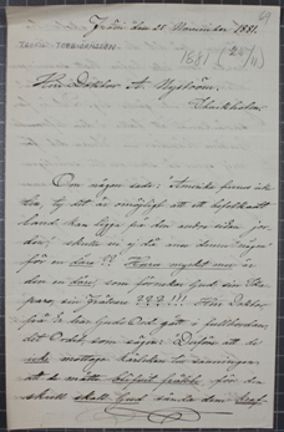 69
Fron den 25 November 1881.
1881 (25/11)
Herr Doktor A. Nyström.
Stockholm.
Om någon sade: "Amerika finns icke
till, ty det är omöjligt att ett befolkadt
land kan ligga på den andra sidan jor-
den", skulle vi ej då anse denne någon
för en dåre?? Huru mycket mer är
den en dåre, som förnekar Gud, sin Ska-
pare, sin Frälsare ???!!! Herr Doktor
på Eder har Guds Ord gått i fullbordan,
det Ordet, som säger: Derföre att de
icke mottaga kärleken till sanningen
att de måtte blifvit frälste, för den
skull skall Gud sända dem kraf-